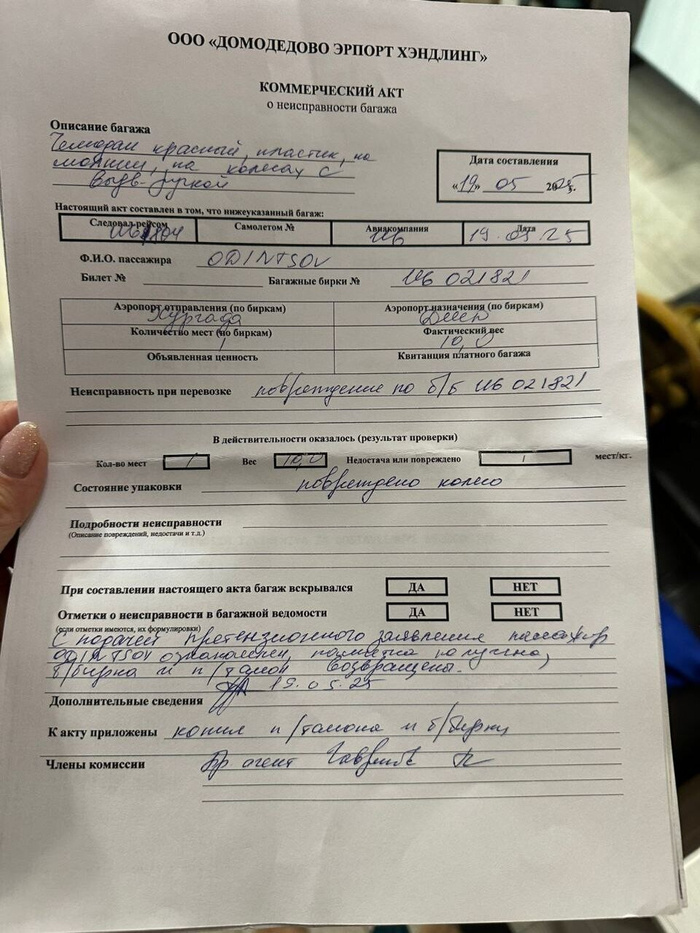 ООО «ДОМОДЕДОВО ЭРПОРТ ХЭНДЛИНГ»
КОММЕРЧЕСКИЙ АКТ
о неисправности багажа
Описание багажа
Чемодан красный, пластик, на
молнии, на колесах с
выдв. ручкой
Дата составления
«19» 05 2025г.
Настоящий акт составлен в том, что нижеуказанный багаж:
Следовал рейсом Самолетом № Авиакомпания Дата
И6 19.05.25
Ф.И.О. пассажира ODINTSOV
Билет № Багажные бирки № И6 021821
Аэропорт отправления (по биркам) Аэропорт назначения (по биркам)
Хургада
Количество мест (по биркам) Фактический вес
1 10,0
Объявленная ценность Квитанция платного багажа
Неисправность при перевозке повреждение по б/б И6 021821
В действительности оказалось (результат проверки)
Кол-во мест 1 Вес 10,0 Недостача или повреждено 1 мест/кг.
Состояние упаковки повреждено колесо
Подробности неисправности
(Описание повреждений, недостачи и т.д.)
При составлении настоящего акта багаж вскрывался ДА НЕТ
Отметки о неисправности в багажной ведомости ДА НЕТ
(если отметки имеются, их формулировки)
С подачей претензионного заявления пассажир
ODINTSOV ознакомлен, памятка получена,
б/бирка и п/талон возвращены.
19.05.25
Дополнительные сведения
К акту приложены копия п/талона и б/бирки
Члены комиссии агент